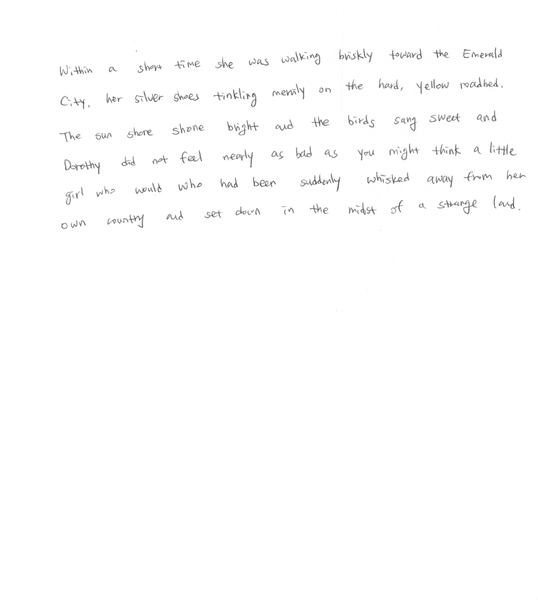 Within a short time she was walking briskly toward the Emerald
City, her silver shoes tinkling merrily on the hard, yellow roadbed.
The sun shore shone bright and the birds sang sweet and
Dorothy did not feel nearly as bad as you might think a little
girl who would who had been suddenly whisked away from her
own country and set down in the midst of a strange land.